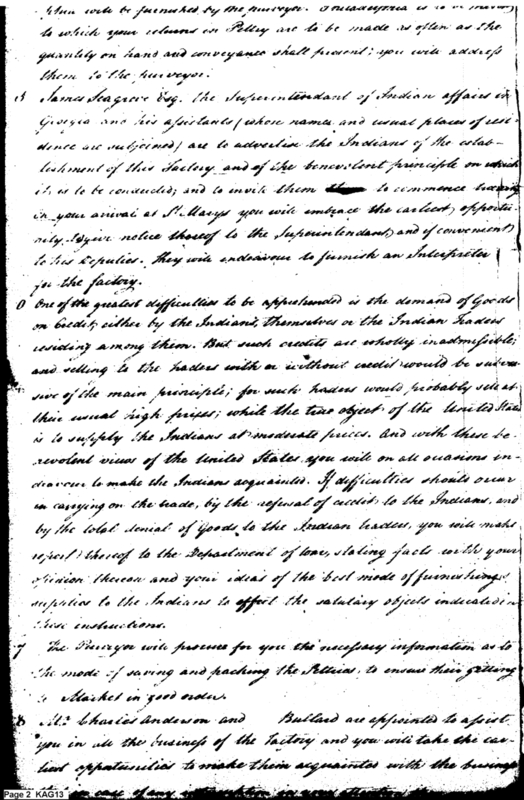 will be furnished by the purveyor. Philadelphia is to be
to which your returns in Peltry are to be made as often as the
quantity on hand and conveyance shall present; you will address
them to the purveyor.
James Seagrove Esq. the Superintendant of Indian affairs in
Georgia and his assistants (whose names and usual places of resi-
dence are subjoined) are to advertise the Indians of the estab-
lishment of this Factory, and of the benevolent principle on which
it is to be conducted; and to invite them to commence trading
in your arrival at St. Marys you will embrace the earliest opportu-
nity to give notice thereof to the Superintendant, and if convenient
to his Deputies. They will endeavour to furnish an Interpreter
for the factory.
One of the greatest difficulties to be apprehended is the demand of Goods
on Credit, either by the Indians themselves or the Indian Traders
residing among them. But such credits are wholly inadmissible;
and selling to the traders with or without credit would be subver-
sive of the main principle; for such traders would probably sell at
their usual high prices; while the true object of the United States
is to supply the Indians at moderate prices. And with these be-
nevolent views of the United States you will on all occasions in-
deavour to make the Indians acquainted. If difficulties should occur
in carrying on the trade, by the refusal of credit to the Indians, and
by the total denial of Goods to the Indian traders, you will make
report thereof to the Department of war, stating facts with your
opinion thereon and your ideas of the best mode of furnishing
supplies to the Indians to effect the salutary objects indicated in
these instructions.
7 The Purveyor will procure for you the necessary information as to
the mode of saving and packing the Peltries, to ensure their getting
to Market in good order.
8 Mr. Charles Anderson and Bullard are appointed to assist
you in all the business of the Factory and you will take the ear-
liest opportunities to make them acquainted with the business
in case of any
Page 2 KAG13